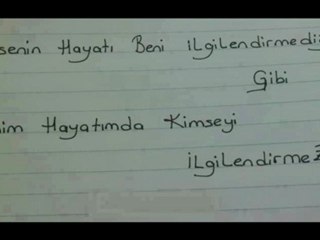 senin Hayatı Beni ilgilendirmedi
Gibi
im Hayatımda Kimseyi
ilgilendirmez